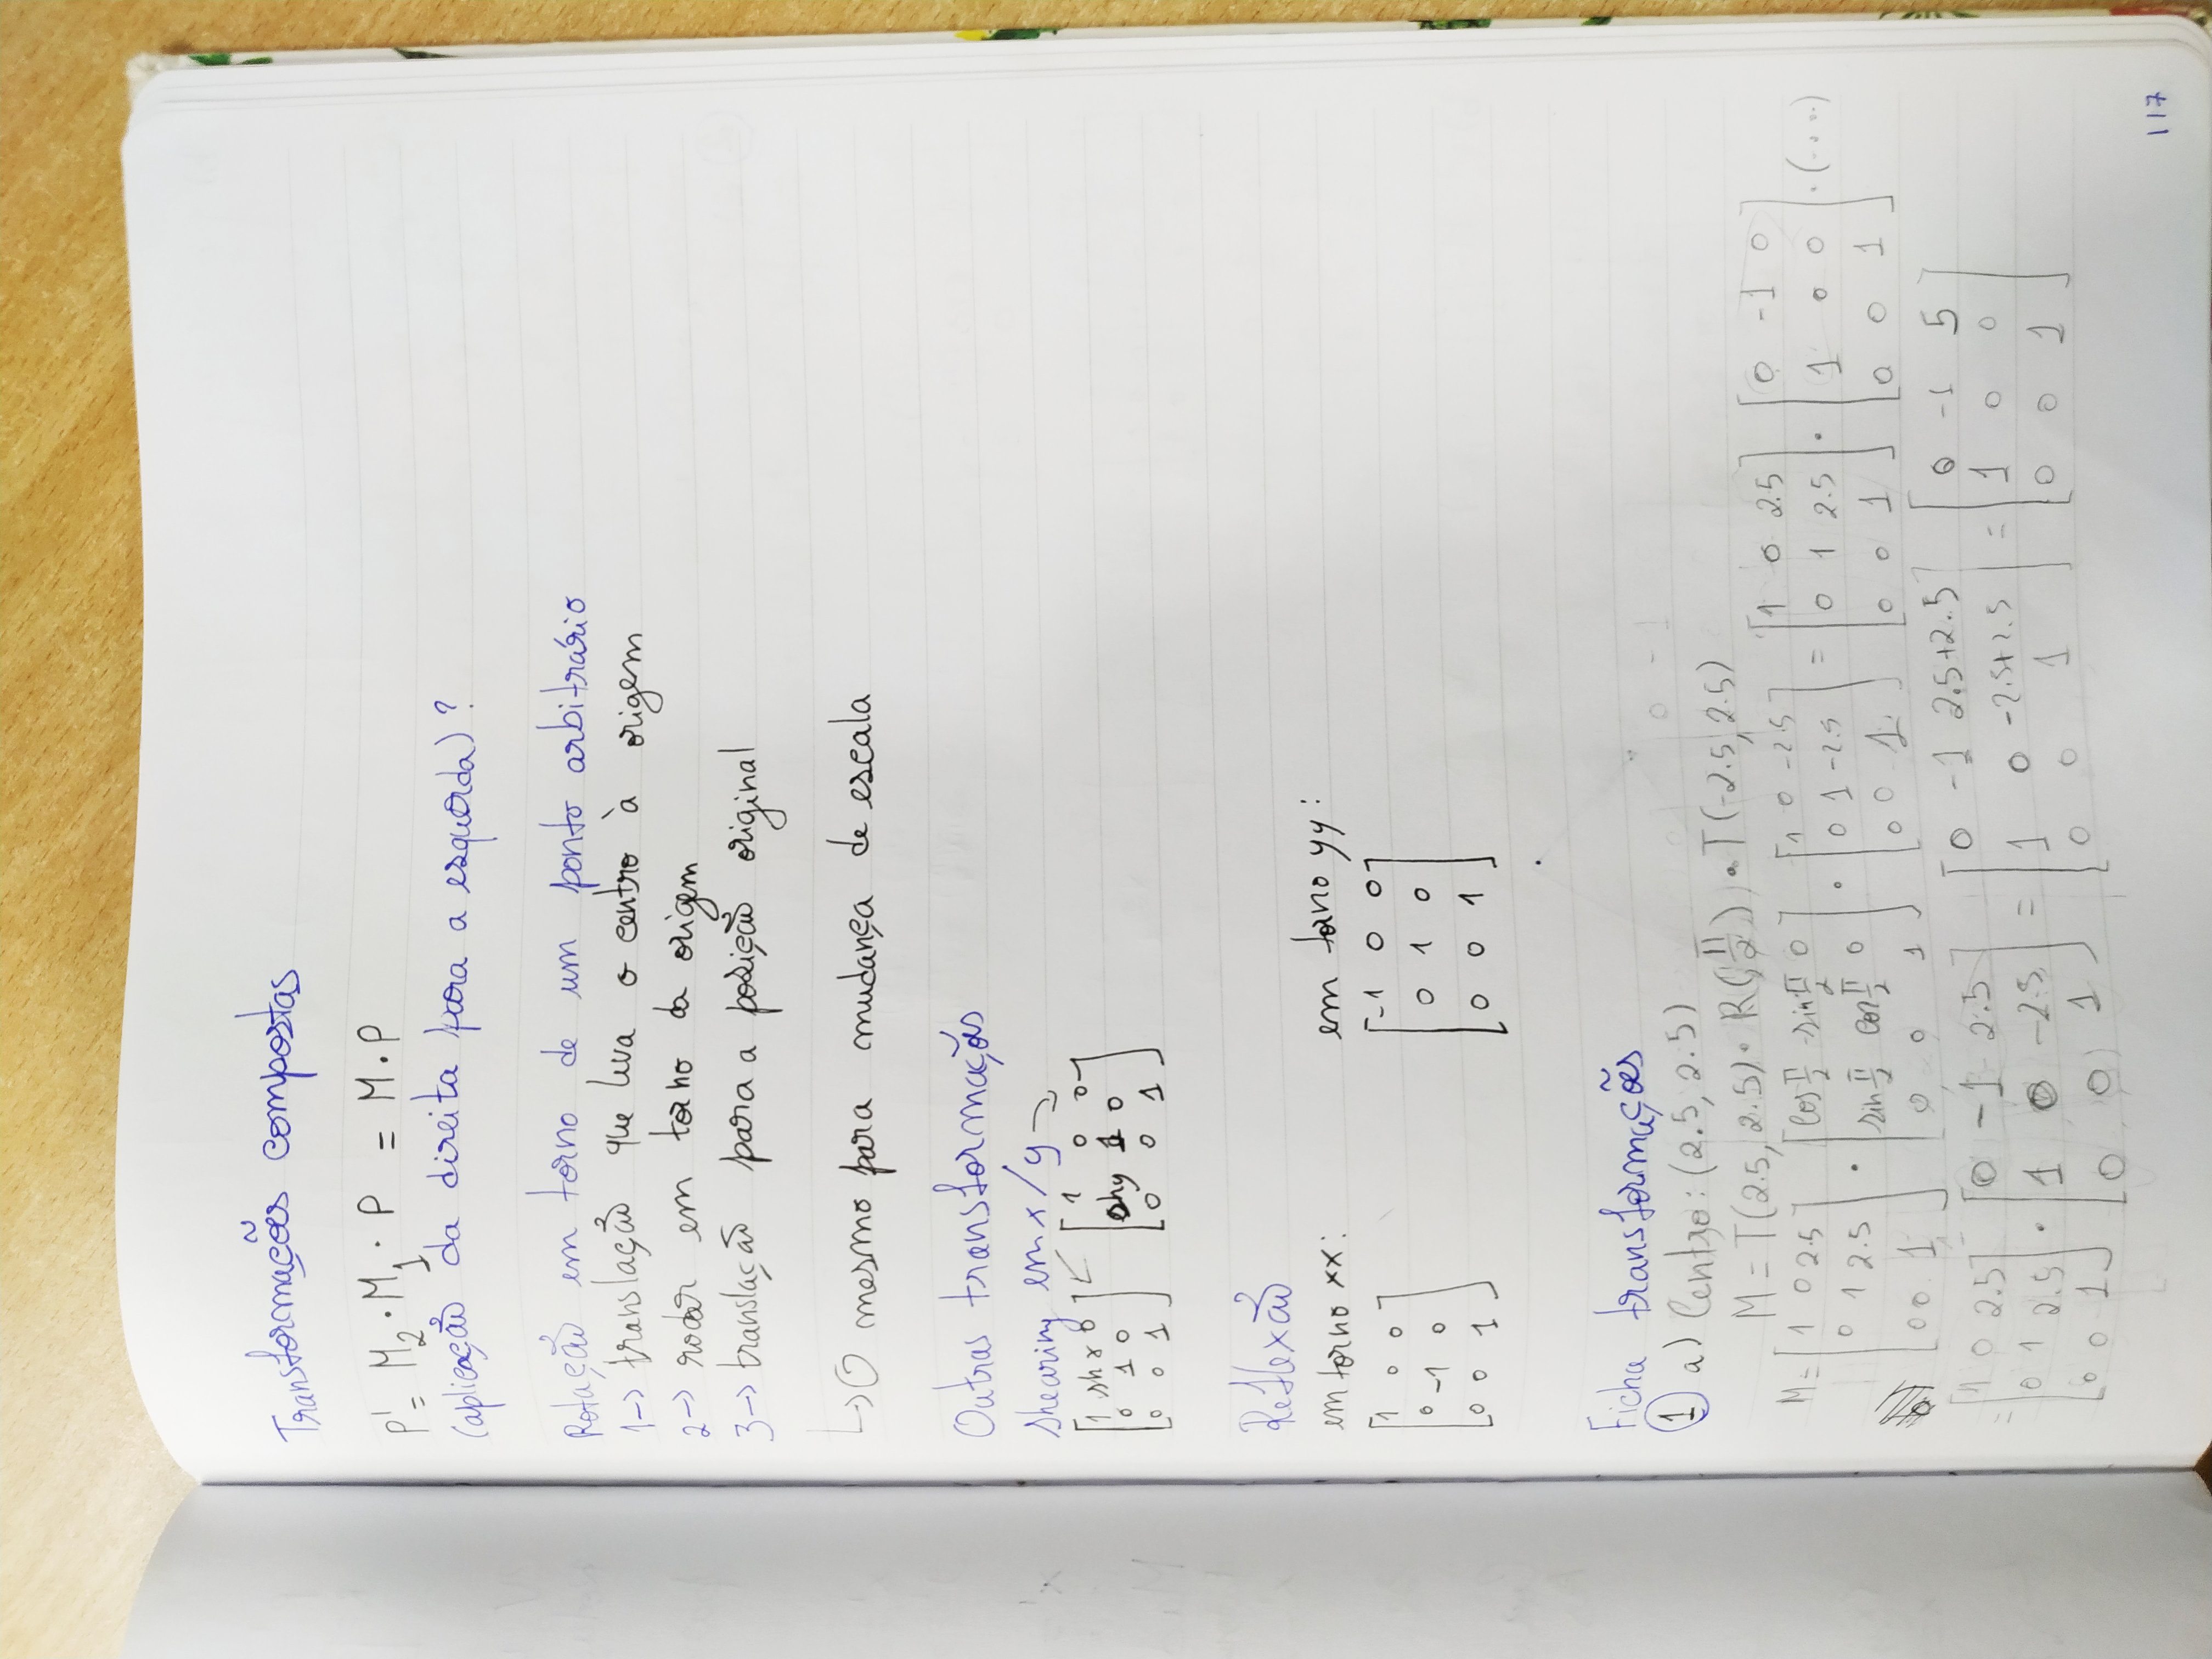 Transformações compostas
P' = M₂ · M₁ · P = M · P
(aplicação da direita para a esquerda) ?
Rotação em torno de um ponto arbitrário
1-> translação que leva o centro à origem
2-> rodar em torno da origem
3-> translação para a posição original
↳ O mesmo para mudança de escala
Outras transformações
shearing em x / y
[1 shx 0] [1 0 0]
[0 1 0] [shy 1 0]
[0 0 1] [0 0 1]
Reflexão
em torno xx: em torno yy:
[1 0 0] [-1 0 0]
[0 -1 0] [0 1 0]
[0 0 1] [0 0 1]
Ficha transformações
① a) Centro: (2.5, 2.5)
M = T(2.5, 2.5) · R(π/2) · T(-2.5, 2.5)
M = [1 0 2.5] · [cos π/2 -sin π/2 0] · [1 0 -2.5] = [1 0 2.5] · [0 -1 0] · (...)
[0 1 2.5] [sin π/2 cos π/2 0] [0 1 -2.5] [0 1 2.5] [1 0 0]
[0 0 1] [0 0 1] [0 0 1] [0 0 1] [0 0 1]
= [1 0 2.5] · [0 -1 2.5] = [0 -1 2.5+2.5] = [0 -1 5]
[0 1 2.5] [1 0 -2.5] [1 0 -2.5+2.5] [1 0 0]
[0 0 1] [0 0 1] [0 0 1] [0 0 1]
117